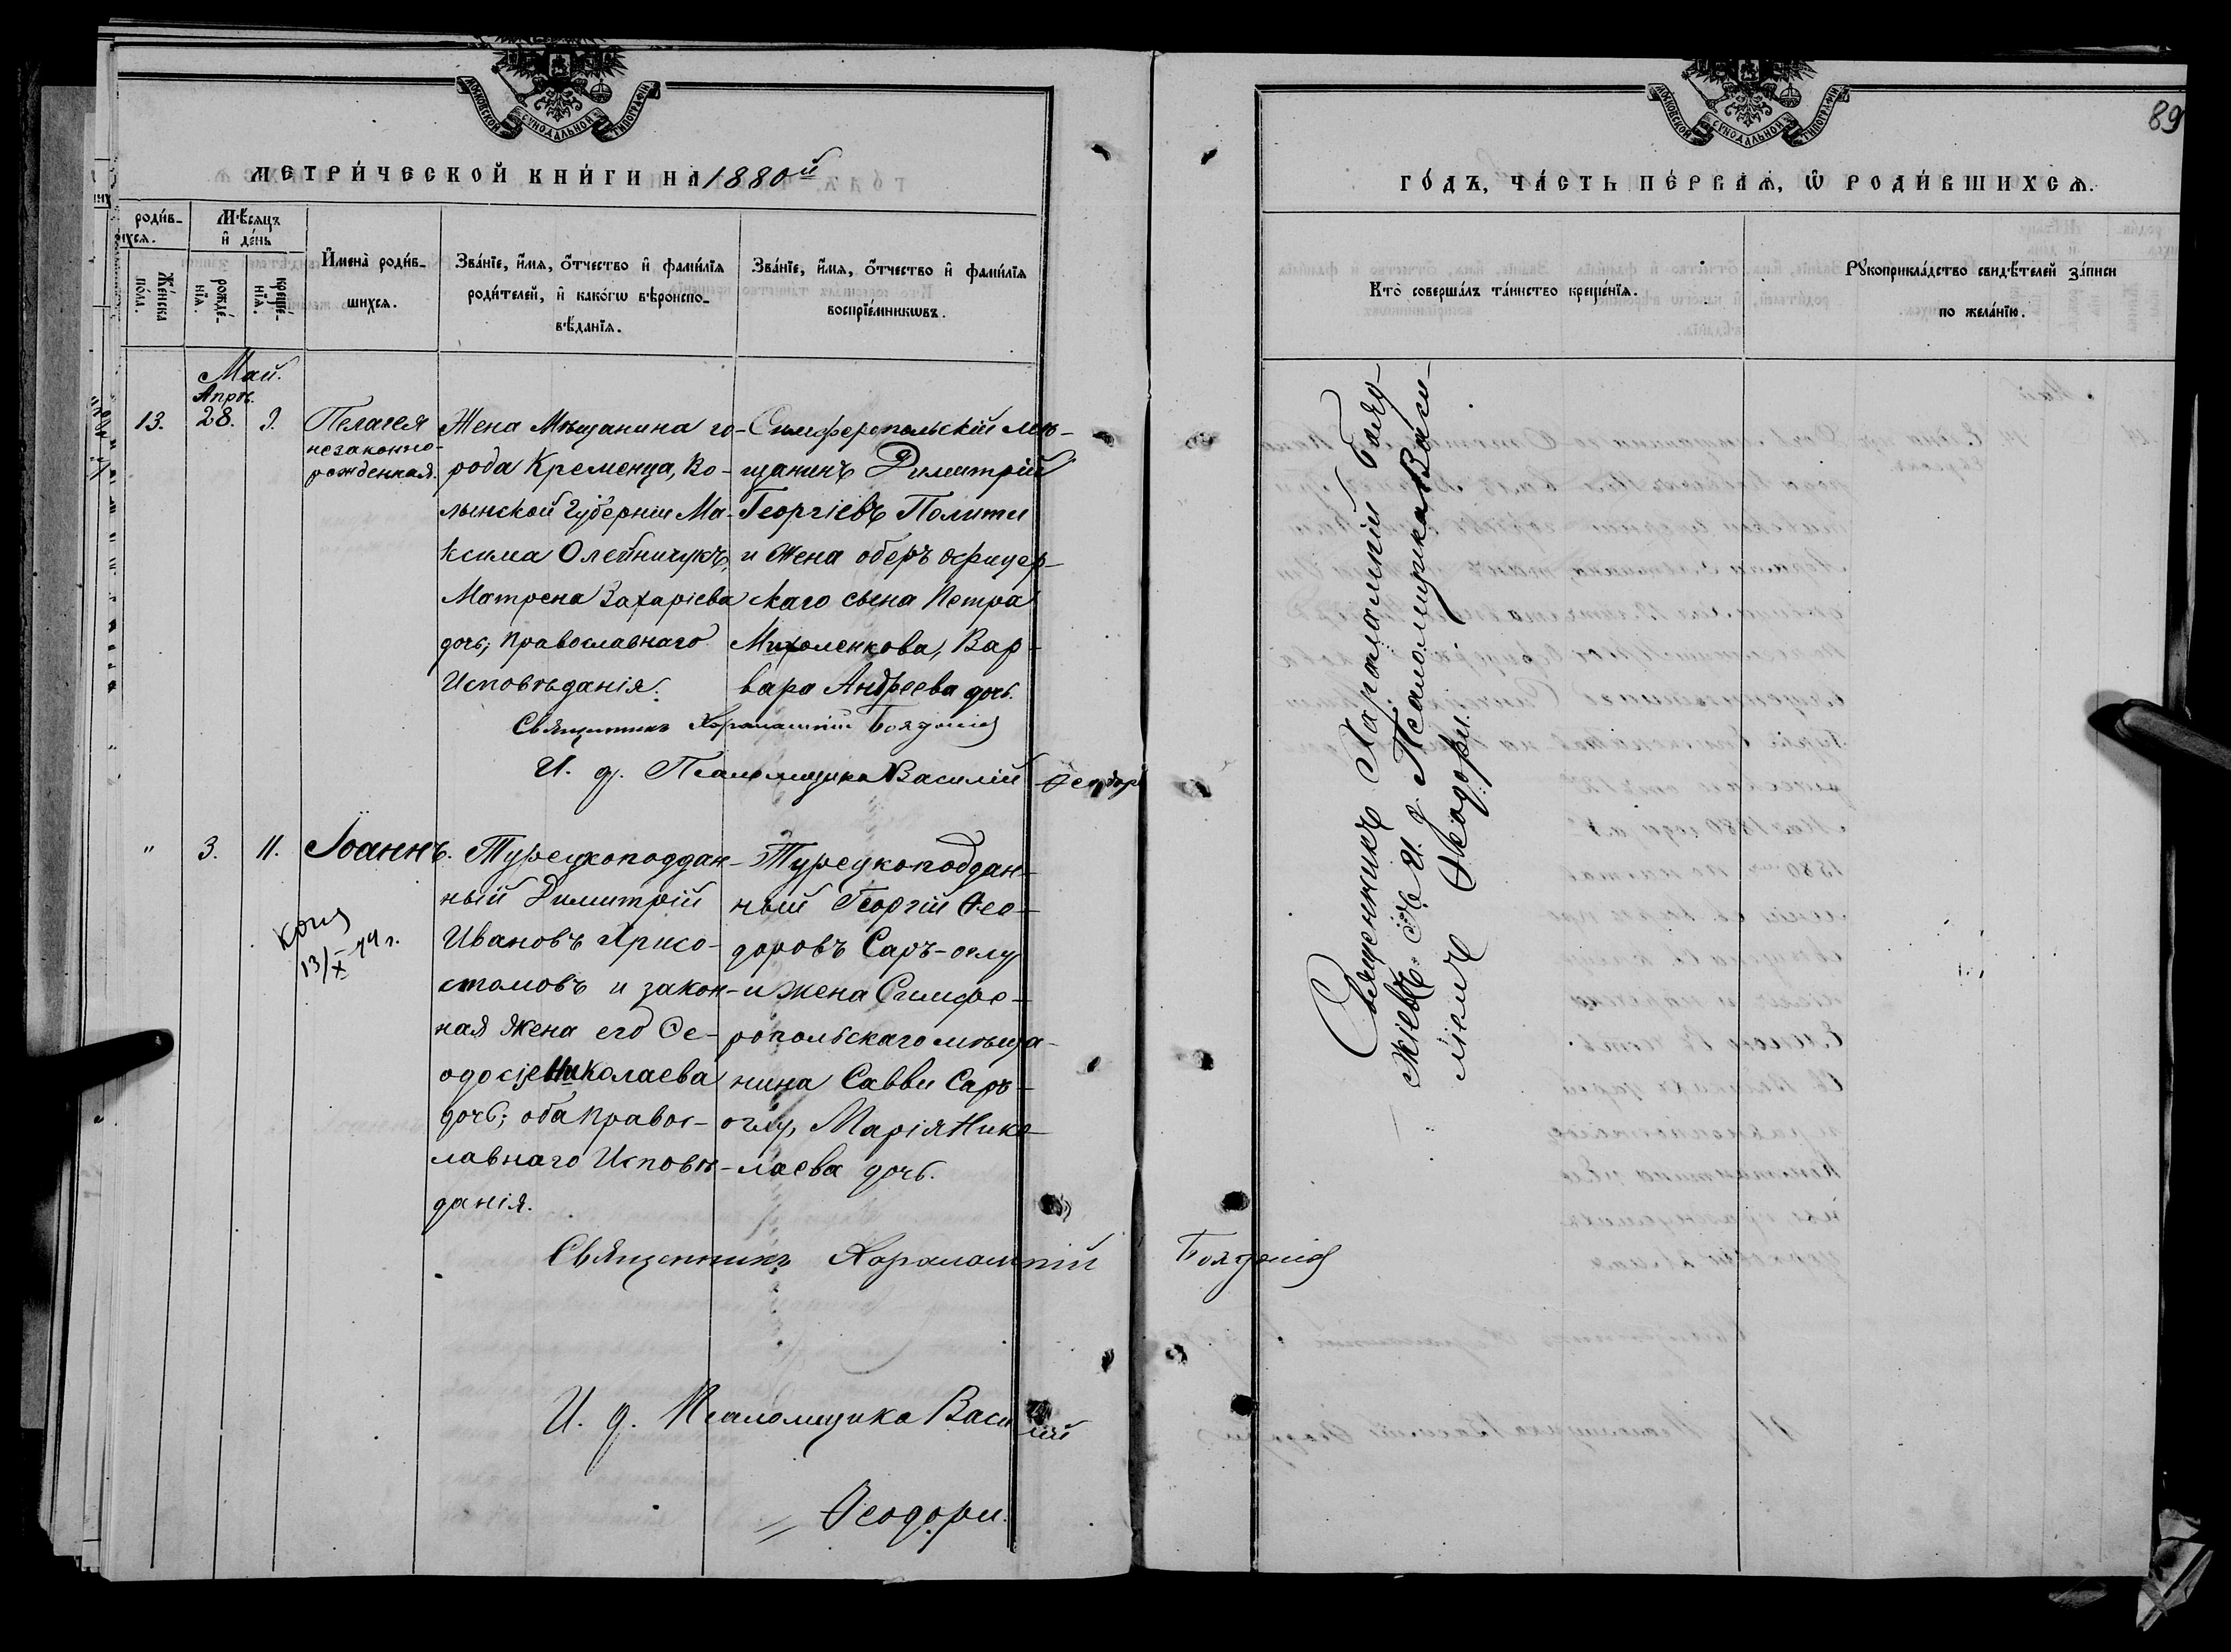 МОСКОВСКОЙ СѴНОДАЛЬНОЙ ТИПОГРАФІИ
МЕТРИ́ЧЕСКОЙ КНИ́ГИ НА 1880й
роди́в-
шихся.
Мѣ́сяцъ
и҆ де́нь
Же́нска
по́ла.
рожде́-
нїѧ.
креще́-
нїѧ.
И҆мена̀ роди́в-
шихсѧ.
Зва́нїе, и҆́мѧ, о҆́тчество и҆ фами́лїѧ
роди́телей, и҆ како́гѡ вѣроиспо-
вѣ́данїѧ.
Зва́нїе, и҆́мѧ, о҆́тчество и҆ фами́лїѧ
воспрїе́мникѡвъ.
Май.
Апрѣ.
13.
28.
9.
Пелагея
незаконно-
рожденная.
Жена Мѣщанина го-
рода Кременца, Во-
лынской Губерніи Ма-
ксима Олейничукъ,
Матрена Захаріева
дочь; Православнаго
Исповѣданія.
Симферопольскій мѣ-
щанинъ Димитрій
Георгіевъ Полити
и Жена оберъ офицер-
скаго сына Петра
Михоленкова, Вар-
вара Андреева дочь.
Священникъ Харалампій
И. д. Псаломщика Василій Ѳеодори
"
3.
11.
Іоаннъ.
13/X
Турецкоподдан-
ный Димитрій
Ивановъ Хрисо-
стомовъ и закон-
ная жена его Ѳе-
одосія Николаева
дочь; оба Правос-
лавнаго Исповѣ-
данія.
Турецкоподдан-
ный Георгій Ѳео-
доровъ Саръ-оглу
и жена Симфе-
ропольскаго мѣща-
нина Саввы Саръ-
оглу, Марія Нико-
лаева дочь.
Священникъ Харалампій
И. д. Псаломщика Василій
Ѳеодори.
МОСКОВСКОЙ СѴНОДАЛЬНОЙ ТИПОГРАФІИ
89
ГО́ДЪ, ЧА́СТЬ ПЕ́РВАѦ, Ѡ҆ РОДИ́ВШИХСѦ.
Кто̀ соверша́лъ та́инство креще́нїѧ.
Рꙋкоприкла́дство свидѣ́телей за́писи
по жела́нїю.
Священникъ Харалампій
И. д. Псаломщика Васи-
лій Ѳеодори.